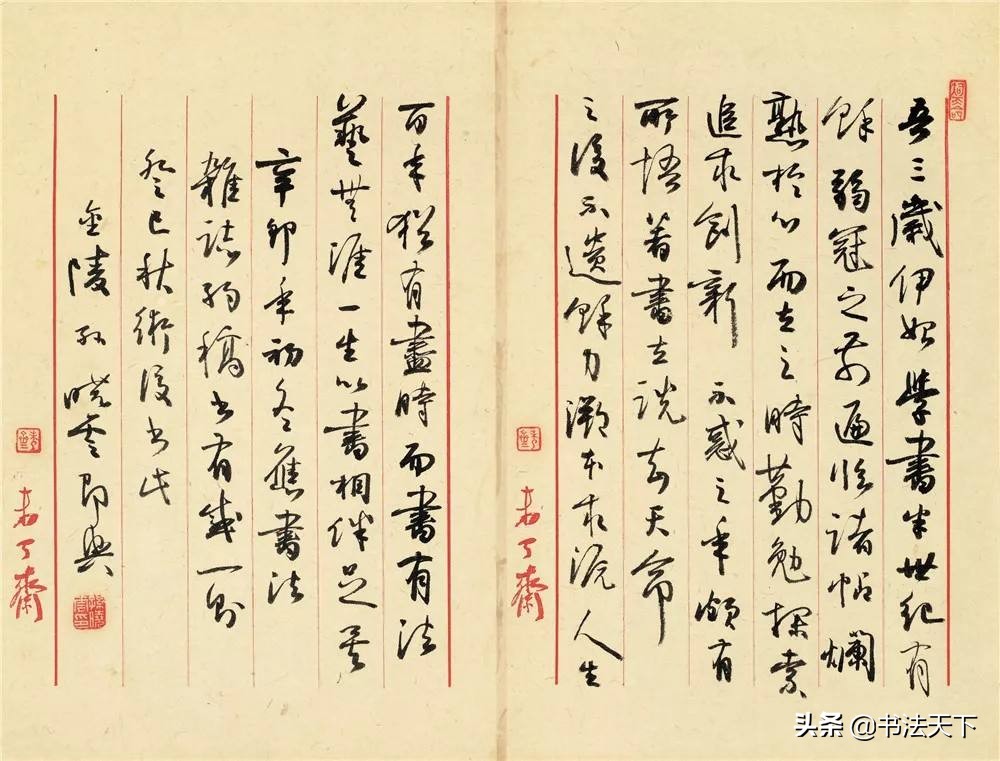 吾三歲伊始學書半世紀有
餘弱冠之前遍臨諸帖爛
熟於心而立之時勤勉探索
追求創新不惑之年頗有
所悟著書立說知天命
之後不遺餘力溯本求源人生
百年猶有盡時而書有法
藝無涯一生以書相伴足矣
辛卯年初冬應書法
雜誌約稿書有感一則
癸巳秋術後書此
金陵孫曉雲即興
未了齋
未了齋
头条 @书法天下